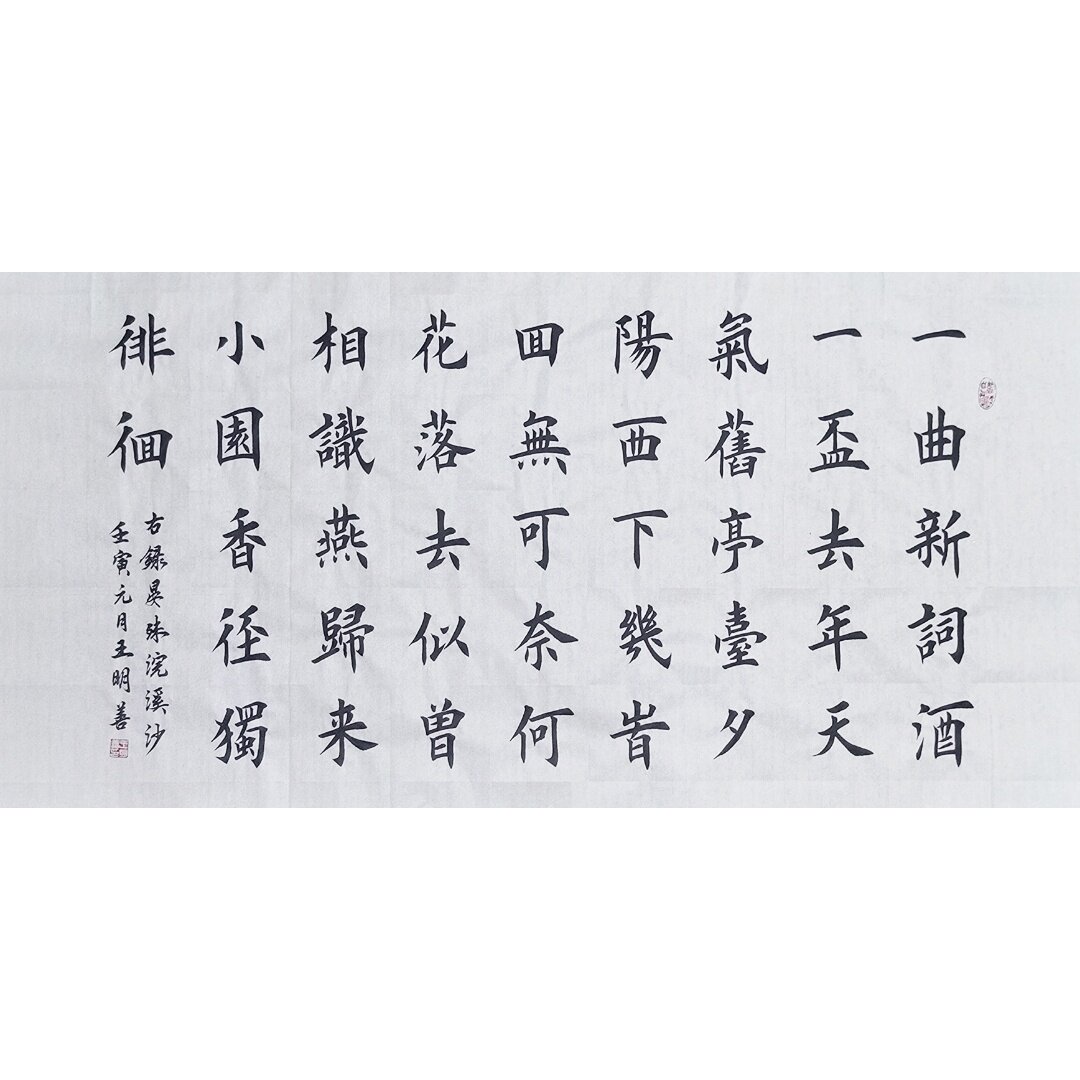 一曲新詞酒
一盃去年天
氣舊亭臺夕
陽西下幾旹
回無可奈何
花落去似曾
相識燕歸来
小園香徑獨
徘徊
右録晏殊浣溪沙
壬寅元月王明善